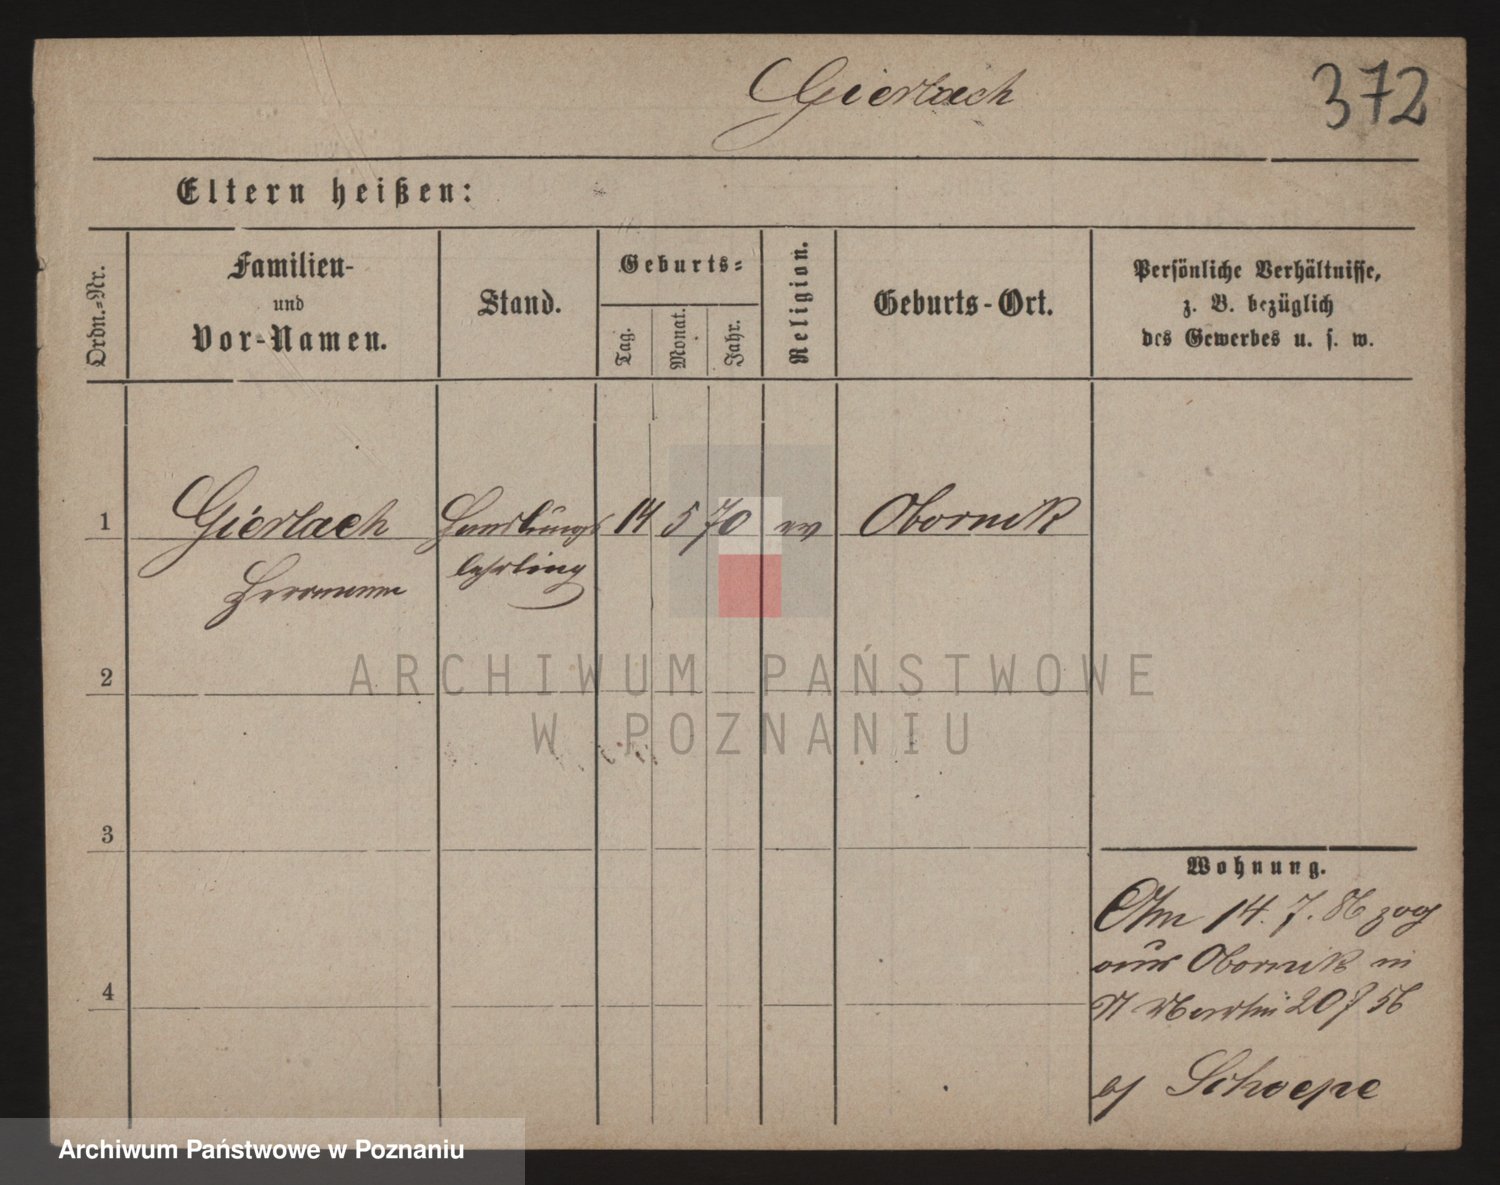 Gierlach
372
Eltern heißen:
Ordn.-Nr.
Familien-
und
Vor-Namen.
Stand.
Geburts-
Tag.
Monat.
Jahr.
Religion.
Geburts-Ort.
Persönliche Verhältnisse,
z. B. bezüglich
des Gewerbes u. s. w.
1
Gierlach
Herrmann
Handlungs
lehrling
14
5
70
ev
Obornik
2
ARCHIWUM PAŃSTWOWE
W POZNANIU
3
4
Wohnung.
Am 14. 7. 86 zog
aus Obornik in
St Martin 20
Schoepe
Archiwum Państwowe w Poznaniu